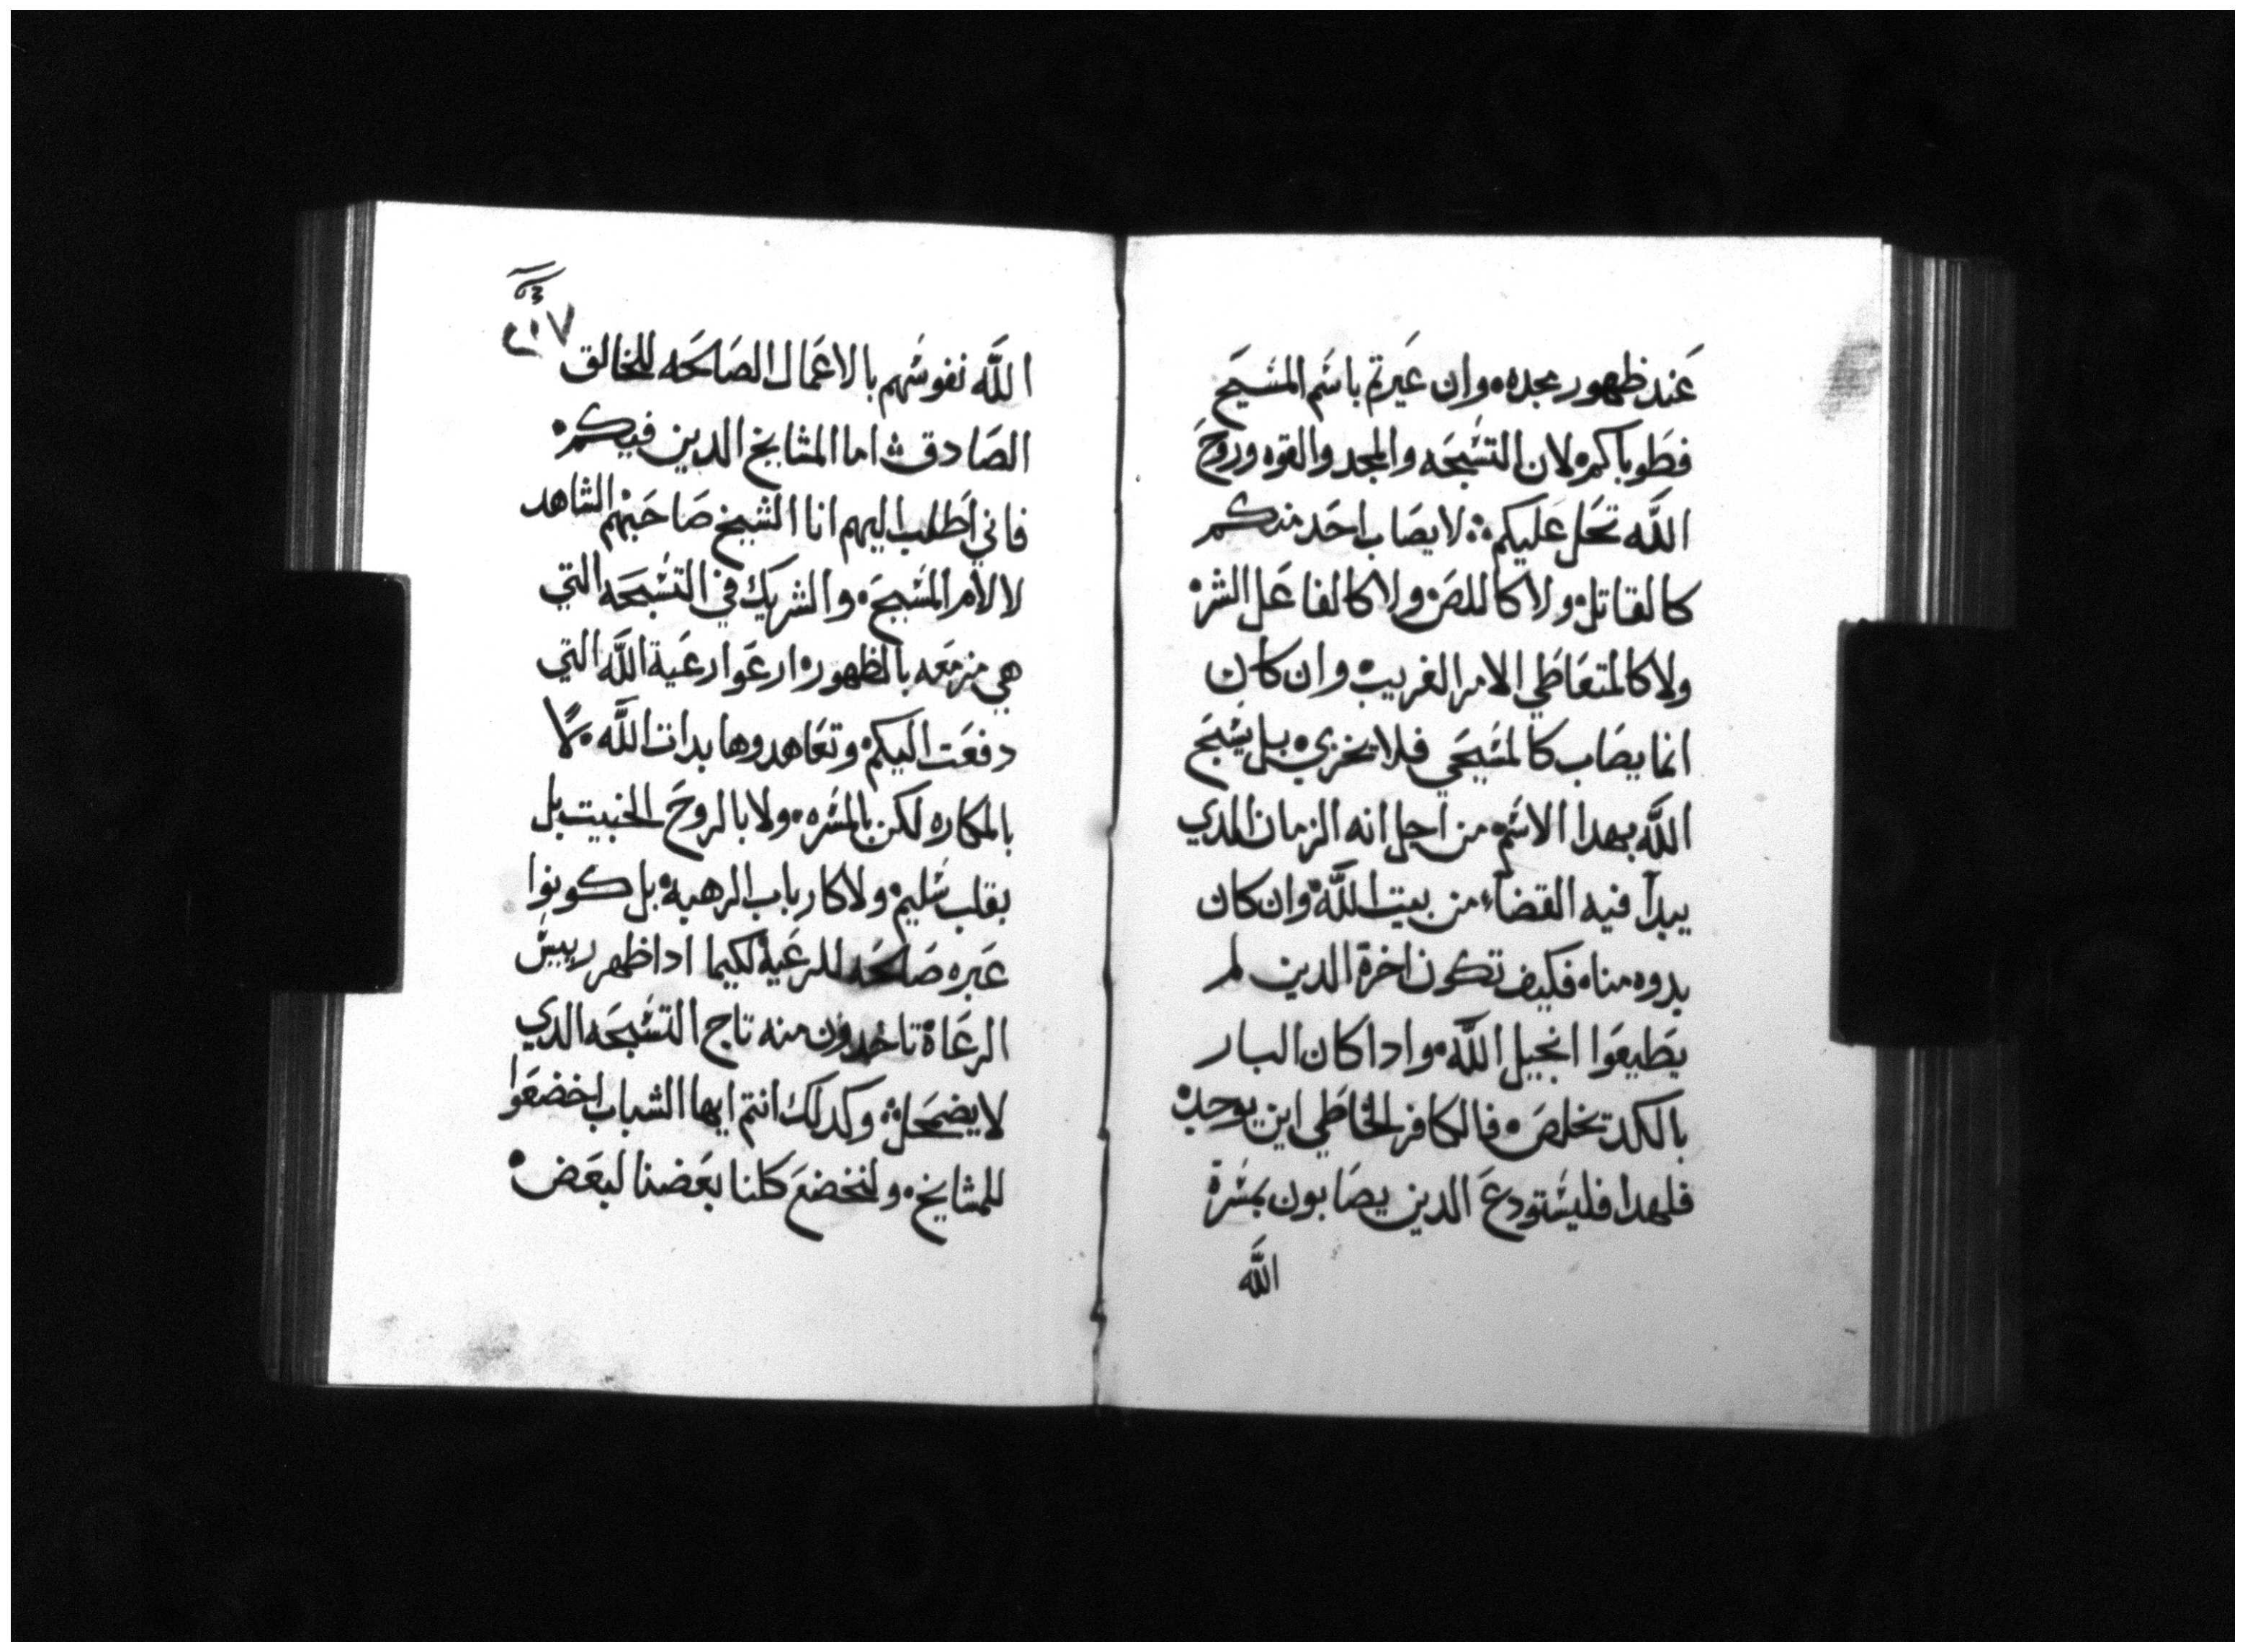 عند ظهور مجده وان عيرتم باسم المسيح
فطوباكم لان التسبحه والمجد والقوه وروح
الله تحل عليكم لا يصاب احد منكم
كالقاتل ولا كاللص ولا كالفاعل الشر
ولا كالمتعاطي الامر الغريب وان كان
انما يصاب كالمسيحي فلا يخزي بل يسبح
الله بهدا الاسم من اجل انه الزمان الدي
يبدا فيه القضاء من بيت الله وان كان
بدوه مناه فكيف تكون اخرة الدين لم
يطيعوا انجيل الله وادا كان البار
بالكد تخلص فالكافر الخاطي اين يوجد
فلهدا فليستودع الدين يصابون بمسرة
الله
٢١٧
الله نفوسهم بالاعمال الصالحه للخالق
الصادق اما المشايخ الدين فيكم
فاني اطلب اليهم انا الشيخ صاحبهم الشاهد
لالام المسيح والشريك في التسبحه التي
هي مزمعه بالظهور ارعوا رعية الله التي
دفعت اليكم وتعاهدوها بدات الله لا
بالمكاره لكن بالمسره ولا بالروح الخبيت بل
بقلب سليم ولا كارباب الرهبه بل كونوا
عبره صالحه للرعية لكيما ادا ظهر رييس
الرعاة تاخدون منه تاج التسبحه الدي
لا يضمحل وكدلك انتم ايها الشباب اخضعوا
للمشايخ ولنخضع كلنا بعضنا لبعض